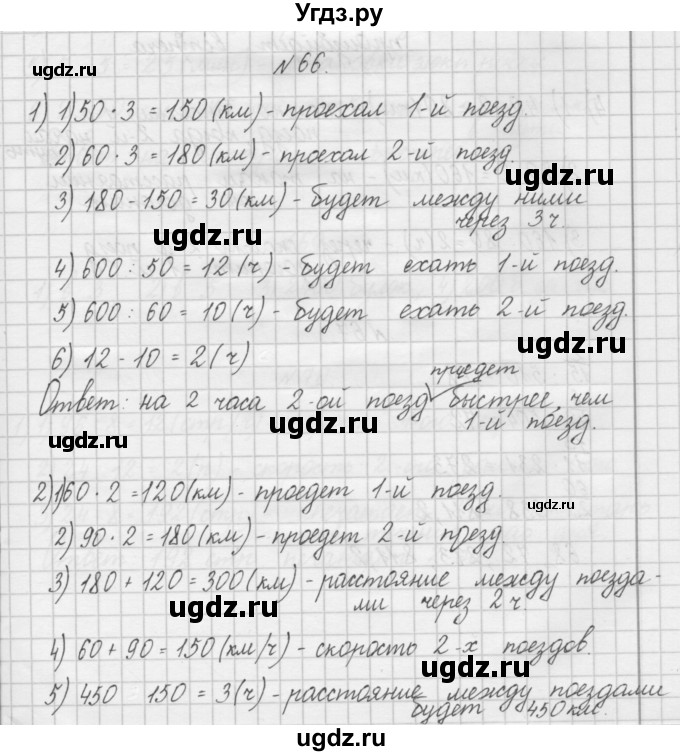 Угдз.ру
ugdz.ru
№ 66.
1) 1) 50 · 3 = 150 (км) - проехал 1-й поезд.
2) 60 · 3 = 180 (км) - проехал 2-й поезд.
ugdz.ru
3) 180 - 150 = 30 (км) - будет между ними
через 3 ч.
ugdz.ru
4) 600 : 50 = 12 (ч) - будет ехать 1-й поезд.
5) 600 : 60 = 10 (ч) - будет ехать 2-й поезд.
ugdz.ru
6) 12 - 10 = 2 (ч)
проедет
Ответ: на 2 часа 2-ой поезд быстрее, чем
1-й поезд.
ugdz.ru
ugdz.ru
2) 1) 60 · 2 = 120 (км) - проедет 1-й поезд.
2) 90 · 2 = 180 (км) - проедет 2-й поезд.
ugdz.ru
3) 180 + 120 = 300 (км) - расстояние между поезда-
ми через 2 ч.
ugdz.ru
4) 60 + 90 = 150 (км/ч) - скорость 2-х поездов.
ugdz.ru
5) 450 150 = 3 (ч) - расстояние между поездами
будет 450 км.
ugdz.ru